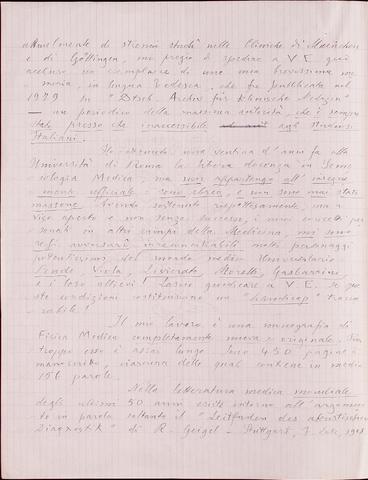 attualmente di stanza studi nelle Cliniche di München
e di Göttingen, mi pregio di spedire a V. E. qui
accluso, un esemplare di una mia brevissima me
moria, in lingua tedesca, che fu pubblicata nel
1929 in "Dtsch. Archiv für klinische Medizin"
— un periodico della massima autorità, che è sempre
stato presso che inaccessibile agli studiosi
Italiani.
Ho ottenuto una ventina d'anni fa alla
Università di Roma la libera docenza in Seme
iologia Medica, ma non appartengo all'insegna
mento ufficiale: sono ebreo, e non sono mai stato
massone. Avendo sostenuto rispettosamente, ma a
viso aperto e non senza successo, i miei concetti per
sonali in altri campi della Medicina, mi sono
avversari irreconciliabili molti personaggi
potentissimi del mondo medico universitario
Viola, Livierato, Morelli, Gasbarrini,
e i loro allievi. Lascio giudicare a V. E. se que
ste condizioni costituiscono un "handicap" trascu
rabile!
Il mio lavoro è una monografia di
Fisica Medica completamente nuova e originale. Pur
troppo esso è assai lungo. Sono 450 pagine
manoscritte, ciascuna delle quali contiene in media
156 parole.
Nella letteratura medica mondiale
degli ultimi 50 anni esiste intorno all'argomen
to in parola soltanto il "Leitfaden der akustischen
Diagnostik" di R. Geigel - Stuttgart,